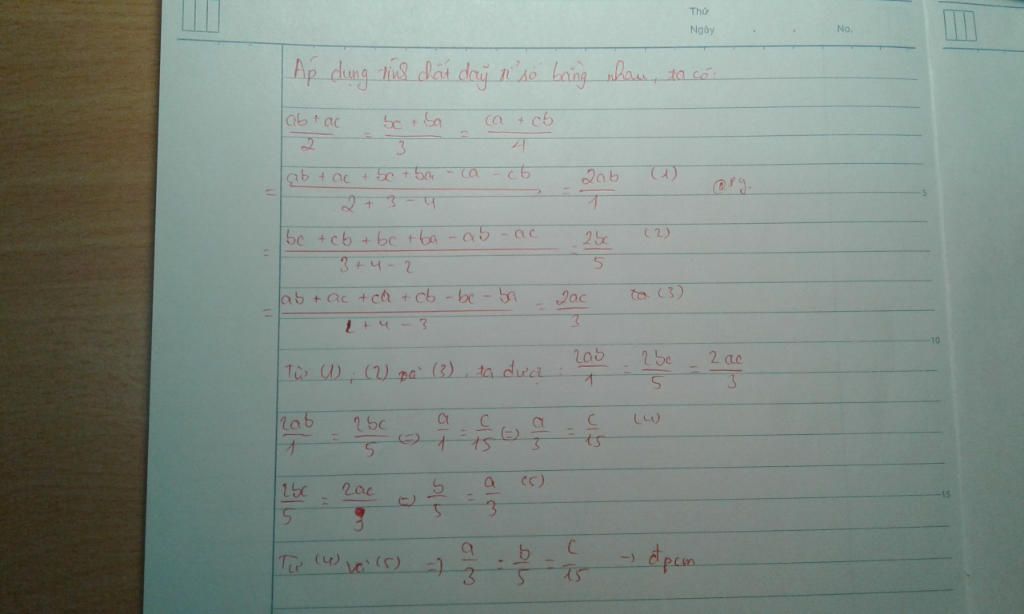 Thứ
Ngày . . No.
Áp dụng tính chất dãy tỉ số bằng nhau, ta có:
ab + ac / 2 = bc + ba / 3 = ca + cb / 4
= ab + ac + bc + ba - ca - cb / 2 + 3 - 4 = 2ab / 1 (1)
= bc + cb + bc + ba - ab - ac / 3 + 4 - 2 = 2bc / 5 (2)
= ab + ac + ca + cb - bc - ba / 2 + 4 - 3 = 2ac / 3 (3)
Từ (1), (2) và (3), ta được: 2ab / 1 = 2bc / 5 = 2ac / 3
2ab / 1 = 2bc / 5 => a / 1 = c / 15 => a / 3 = c / 15 (4)
2bc / 5 = 2ac / 3 => b / 5 = a / 3 (5)
Từ (4) và (5) => a / 3 = b / 5 = c / 15 → đpcm
5
10
15